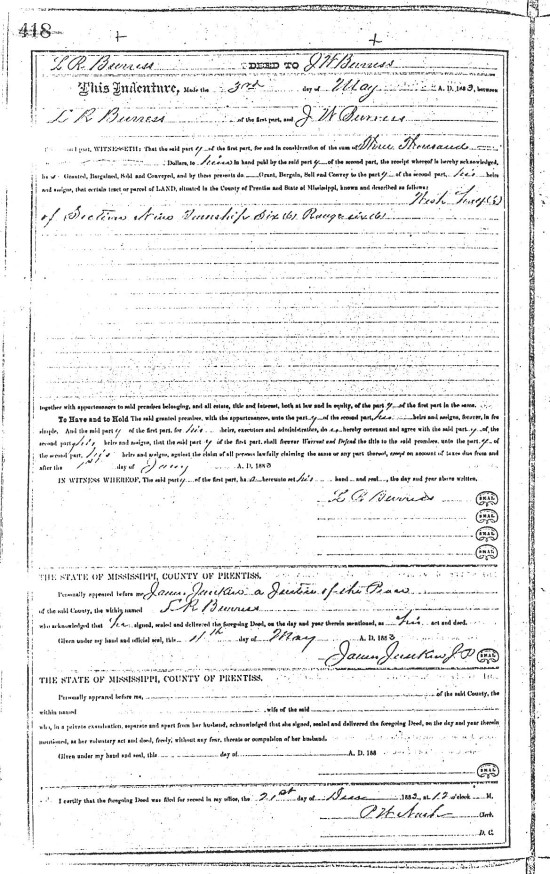 418
L R Burress DEED TO J W Burress
This Indenture, Made the 3rd day of May A. D. 1883, between
L R Burress of the first part, and J W Burress
part, WITNESSETH: That the said party of the first part, for and in consideration of the sum of Three Thousand
Dollars, to him in hand paid by the said party of the second part, the receipt whereof is hereby acknowledged,
has Granted, Bargained, Sold and Conveyed, and by these presents do Grant, Bargain, Sell and Convey to the party of the second part, his heirs
and assigns, that certain tract or parcel of LAND, situated in the County of Prentiss and State of Mississippi, known and described as follows:
West half (½)
of Section Nine Township Six (6) Range six (6)
together with appurtenances to said premises belonging, and all estate, title and interest, both at law and in equity, of the party of the first part in the same.
To Have and to Hold The said granted premises, with the appurtenances, unto the party of the second part, his heirs and assigns, forever, in fee
simple. And the said party of the first part, for his heirs, executors and administrators, do hereby covenant and agree with the said party of the
second part, his heirs and assigns, that the said party of the first part, shall forever Warrant and Defend the title to the said premises, unto the party of
the second part, his heirs and assigns, against the claim of all persons lawfully claiming the same or any part thereof, except on account of taxes due from and
after the 1st day of Jany A. D. 1883
IN WITNESS WHEREOF, The said party of the first part, has hereunto set his hand and seal, the day and year above written.
L R Burress SEAL
SEAL
SEAL
SEAL
THE STATE OF MISSISSIPPI, COUNTY OF PRENTISS.
Personally appeared before me James Junkin a Justice of the Peace
of the said County, the within named L R Burress
who acknowledged that he signed, sealed and delivered the foregoing Deed, on the day and year therein mentioned, as his act and deed.
Given under my hand and official seal, this 11th day of May A. D. 1883
James Junkin J P SEAL
THE STATE OF MISSISSIPPI, COUNTY OF PRENTISS.
Personally appeared before me, of the said County, the
within named wife of the said
who, in a private examination, separate and apart from her husband, acknowledged that she signed, sealed and delivered the foregoing Deed, on the day and year therein
mentioned, as her voluntary act and deed, freely, without any fear, threats or compulsion of her husband.
Given under my hand and seal, this day of A. D. 188
SEAL
I certify that the foregoing Deed was filed for record in my office, the 21st day of 188 at 12 o'clock M.
P W Nash Clerk.
D. C.